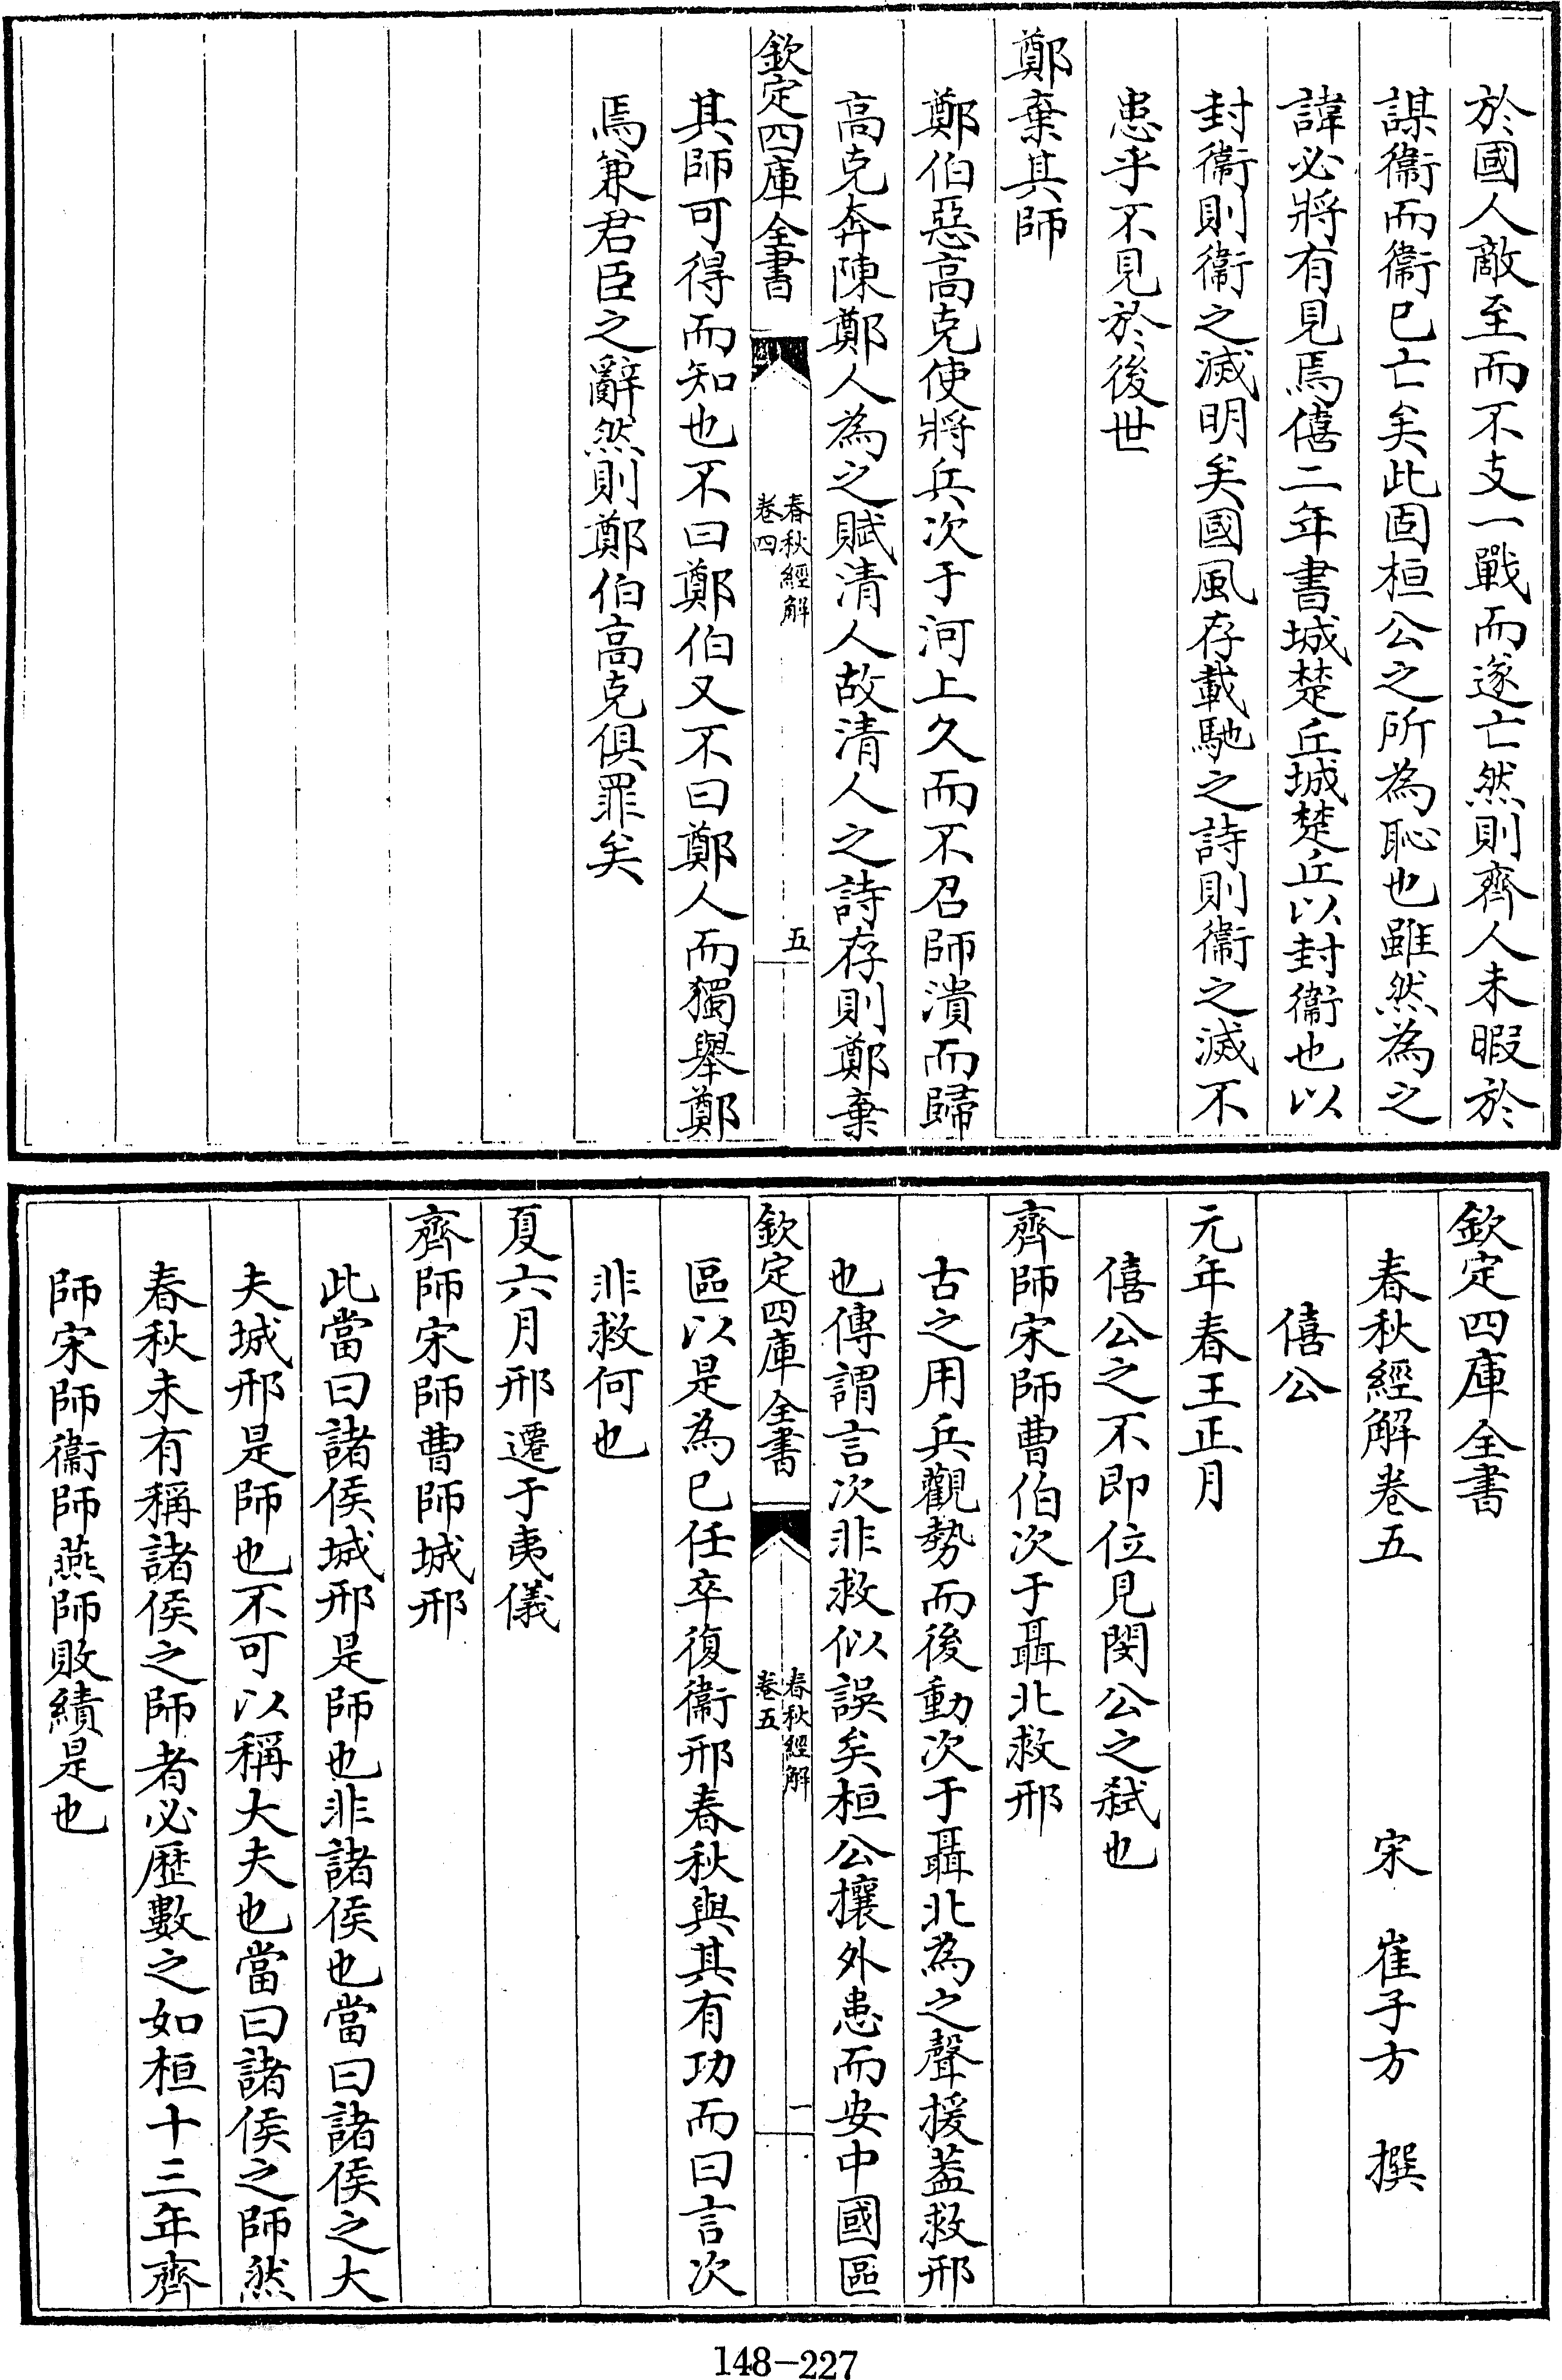 於國人敵至而不支一戰而遂亡然則齊人未暇於
謀衞而衞已亡矣此固桓公之所為恥也雖然為之
諱必將有見焉僖二年書城楚丘城楚丘以封衞也以
封衞則衞之滅明矣國風存載馳之詩則衞之滅不
患乎不見於後世
鄭棄其師
鄭伯惡高克使將兵次于河上久而不召師潰而歸
高克奔陳鄭人為之賦清人故清人之詩存則鄭棄
欽定四庫全書
春秋經解
卷四
五
其師可得而知也不曰鄭伯又不曰鄭人而獨舉鄭
焉兼君臣之辭然則鄭伯高克俱罪矣
欽定四庫全書
春秋經解卷五
宋 崔子方 撰
僖公
元年春王正月
僖公之不即位見閔公之弑也
齊師宋師曹伯次于聶北救邢
古之用兵觀勢而後動次于聶北為之聲援蓋救邢
也傳謂言次非救似誤矣桓公攘外患而安中國區
欽定四庫全書
春秋經解
卷五
一
區以是為已任卒復衞邢春秋與其有功而曰言次
非救何也
夏六月邢遷于夷儀
齊師宋師曹師城邢
此當曰諸侯城邢是師也非諸侯也當曰諸侯之大
夫城邢是師也不可以稱大夫也當曰諸侯之師然
春秋未有稱諸侯之師者必歴數之如桓十三年齊
師宋師衞師燕師敗績是也
148-227